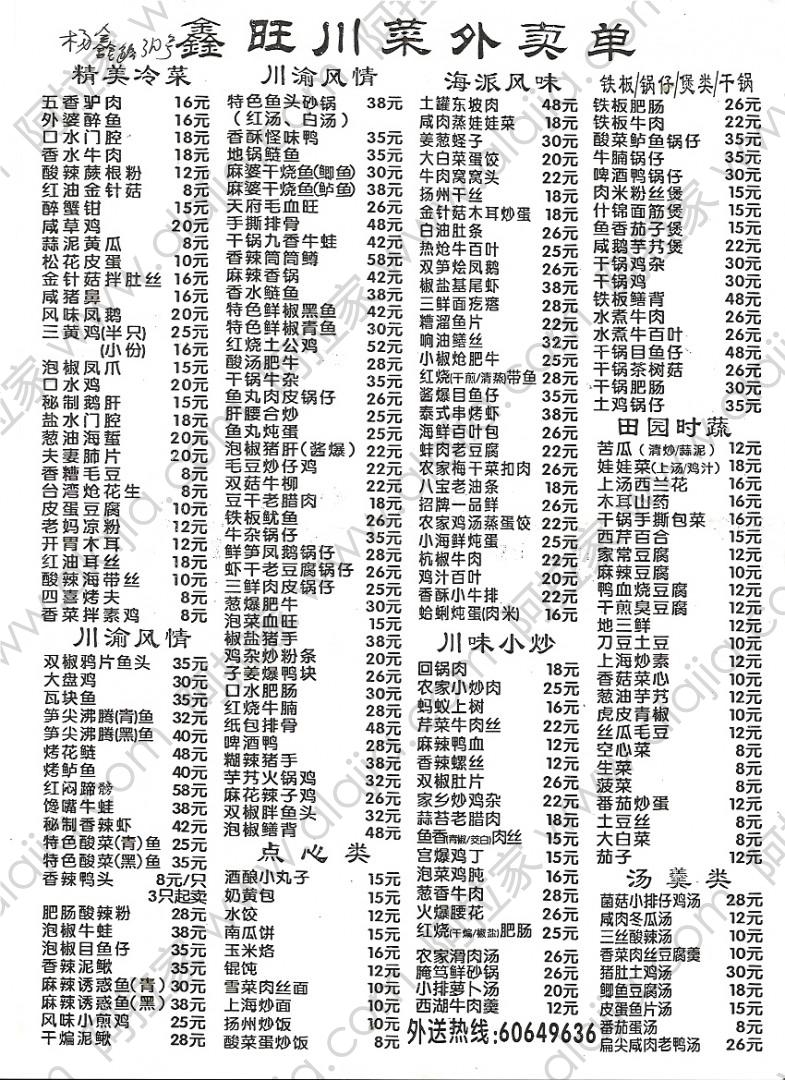 鑫旺川菜外卖单
精美冷菜
五香驴肉 16元
外婆醉鱼 16元
口水门腔 18元
香水牛肉 18元
酸辣蕨根粉 12元
红油金针菇 8元
醉蟹钳 15元
咸草鸡 20元
蒜泥黄瓜 8元
松花皮蛋 10元
金针菇拌肚丝 16元
咸猪鼻 16元
风味凤鹅 20元
三黄鸡(半只) 25元
(小份) 16元
泡椒凤爪 15元
口水鸡 20元
秘制鹅肝 15元
盐水门腔 18元
葱油海蜇 20元
夫妻肺片 20元
香糟毛豆 8元
台湾炝花生 8元
皮蛋豆腐 10元
老妈凉粉 12元
开胃木耳 12元
红油耳丝 18元
酸辣海带丝 10元
四喜烤夫 8元
香菜拌素鸡 8元
川渝风情
双椒鸦片鱼头 35元
大盘鸡 30元
瓦块鱼 35元
笋尖沸腾(青)鱼 32元
笋尖沸腾(黑)鱼 40元
烤花鲢 48元
烤鲈鱼 40元
红闷蹄髈 58元
馋嘴牛蛙 38元
秘制香辣虾 42元
特色酸菜(青)鱼 25元
特色酸菜(黑)鱼 35元
香辣鸭头 8元/只
3只起卖
肥肠酸辣粉 28元
泡椒牛蛙 38元
泡椒目鱼仔 35元
香辣泥鳅 35元
麻辣诱惑鱼(青) 30元
麻辣诱惑鱼(黑) 38元
风味小煎鸡 25元
干煸泥鳅 28元
川渝风情
特色鱼头砂锅 38元
(红汤、白汤)
香酥怪味鸭 35元
地锅鲢鱼 35元
麻婆干烧鱼(鲫鱼) 30元
麻婆干烧鱼(鲈鱼) 38元
天府毛血旺 26元
手撕排骨 48元
干锅九香牛蛙 42元
香辣筒筒鳟 58元
麻辣香锅 42元
香水鲢鱼 38元
特色鲜椒黑鱼 42元
特色鲜椒青鱼 30元
红烧土公鸡 52元
酸汤肥牛 28元
干锅牛杂 35元
鱼丸肉皮锅仔 26元
肝腰合炒 25元
鱼丸炖蛋 25元
泡椒猪肝(酱爆) 22元
毛豆炒仔鸡 22元
双菇牛柳 22元
豆干老腊肉 18元
铁板鱿鱼 26元
牛杂锅仔 35元
鲜笋凤鹅锅仔 28元
虾干老豆腐锅仔 26元
三鲜肉皮锅仔 25元
葱爆肥牛 30元
泡菜血旺 15元
椒盐猪手 38元
鸡杂炒粉条 20元
子姜爆鸭块 26元
口水肥肠 30元
红烧牛腩 28元
纸包排骨 48元
啤酒鸭 28元
糊辣猪手 38元
芋艿火锅鸡 32元
麻花辣子鸡 26元
双椒胖鱼头 32元
泡椒鳝背 48元
点心类
酒酿小丸子 15元
奶黄包 15元
水饺 12元
南瓜饼 15元
玉米烙 15元
馄饨 12元
雪菜肉丝面 10元
上海炒面 10元
扬州炒饭 10元
酸菜蛋炒饭 8元
海派风味
土罐东坡肉 48元
咸肉蒸娃娃菜 18元
姜葱蛏子 30元
大白菜蛋饺 20元
牛肉窝窝头 22元
扬州干丝 18元
金针菇木耳炒蛋 18元
白油肚条 26元
热炝牛百叶 25元
双笋烩凤鹅 26元
椒盐基尾虾 38元
三鲜面疙瘩 28元
糟溜鱼片 22元
响油鳝丝 32元
小椒炝肥牛 25元
红烧(干煎/清蒸)带鱼 28元
酱爆目鱼仔 35元
泰式串烤虾 38元
海鲜百叶包 26元
蚌肉老豆腐 22元
农家梅干菜扣肉 26元
八宝老油条 18元
招牌一品鲜 26元
农家鸡汤蒸蛋饺 22元
小海鲜炖蛋 25元
杭椒牛肉 22元
鸡汁百叶 20元
香酥小牛排 22元
蛤蜊炖蛋(肉米) 16元
川味小炒
回锅肉 18元
农家小炒肉 25元
蚂蚁上树 16元
芹菜牛肉丝 22元
麻辣鸭血 12元
香辣螺丝 12元
双椒肚片 26元
家乡炒鸡杂 22元
蒜苔老腊肉 18元
鱼香(青椒/茭白)肉丝 15元
宫爆鸡丁 15元
泡菜鸡肫 16元
葱香牛肉 28元
火爆腰花 26元
红烧(干煸/椒盐)肥肠 25元
农家滑肉汤 26元
腌笃鲜砂锅 26元
小排萝卜汤 20元
西湖牛肉羹 12元
外送热线:60649636
铁板/锅仔/煲类/干锅
铁板肥肠 26元
铁板牛肉 22元
酸菜鲈鱼锅仔 35元
牛腩锅仔 35元
啤酒鸭锅仔 30元
肉米粉丝煲 15元
什锦面筋煲 15元
鱼香茄子煲 15元
咸鹅芋艿煲 22元
干锅鸡杂 30元
干锅鸡 30元
铁板鳝背 48元
水煮牛肉 26元
水煮牛百叶 26元
干锅目鱼仔 48元
干锅茶树菇 26元
干锅肥肠 30元
土鸡锅仔 35元
田园时蔬
苦瓜(清炒/蒜泥) 12元
娃娃菜(上汤/鸡汁) 18元
上汤西兰花 16元
木耳山药 16元
干锅手撕包菜 16元
西芹百合 15元
家常豆腐 12元
麻辣豆腐 10元
鸭血烧豆腐 12元
干煎臭豆腐 12元
地三鲜 12元
刀豆土豆 10元
上海炒素 12元
香菇菜心 10元
葱油芋艿 12元
虎皮青椒 10元
丝瓜毛豆 12元
空心菜 8元
生菜 8元
菠菜 8元
番茄炒蛋 12元
土豆丝 8元
大白菜 8元
茄子 12元
汤羹类
菌菇小排仔鸡汤 28元
咸肉冬瓜汤 12元
三丝酸辣汤 10元
香菜肉丝豆腐羹 10元
猪肚土鸡汤 30元
鲫鱼豆腐汤 18元
皮蛋鱼片汤 15元
番茄蛋汤 8元
扁尖咸肉老鸭汤 26元